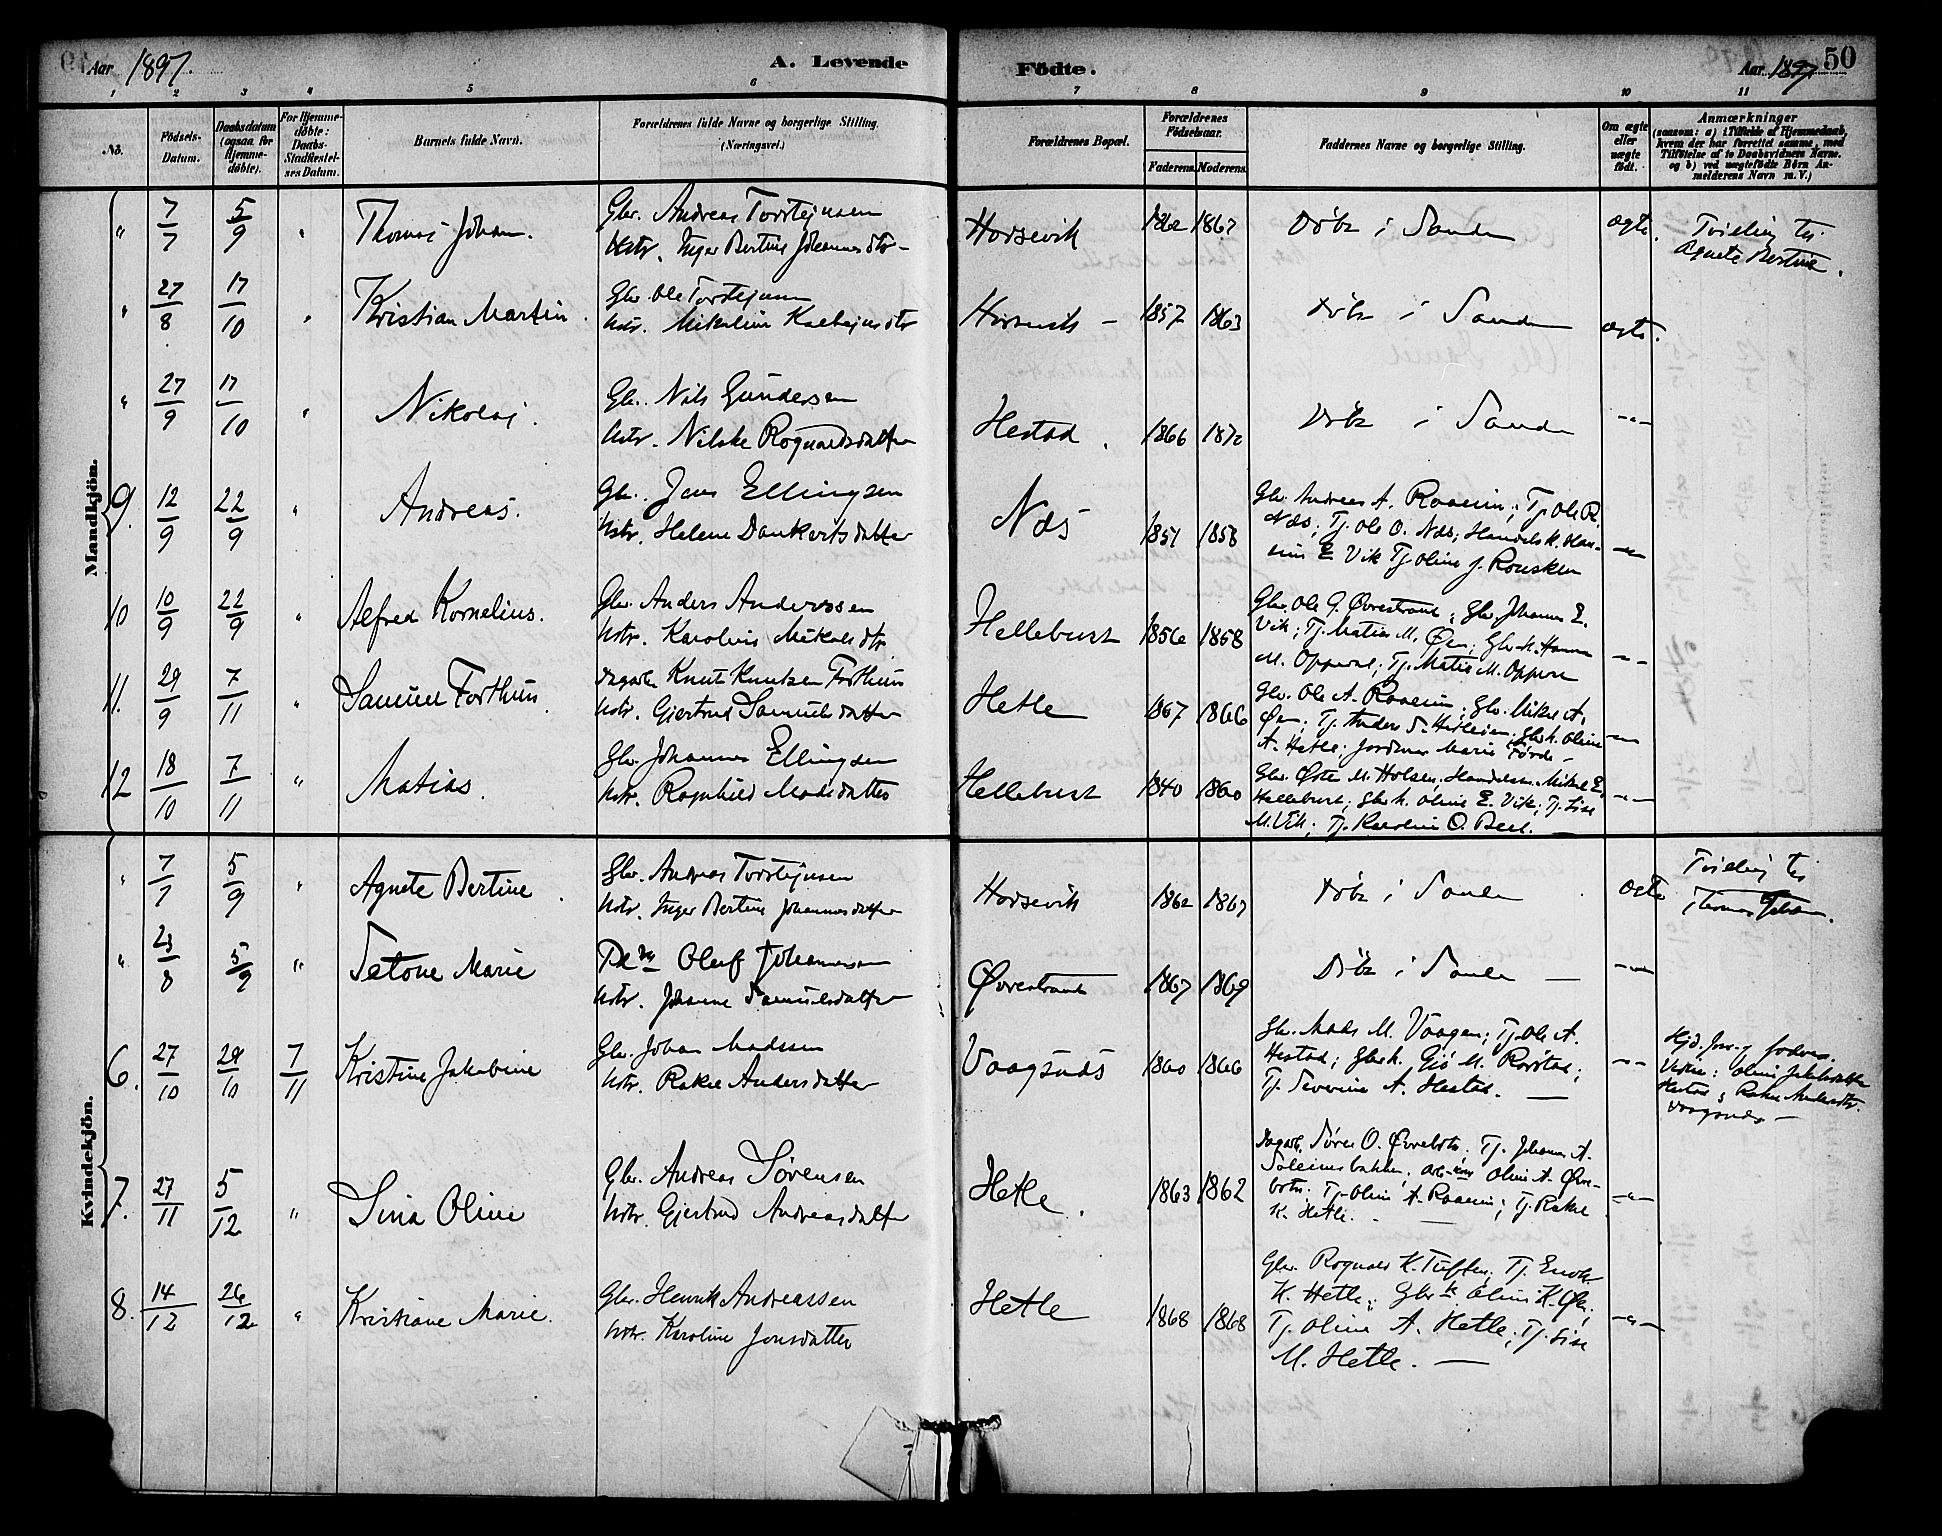 Aar 1897.
A. Levende
Födte.
Aar 1897
50
1 2 3 4 5 6 7 8 9 10 11
No.
Födsels-
Datum.
Daabsdatum
(ogsaa for
Hjemme-
döbte).
For Hjemme-
döbte:
Daabs-
Stadfæstel-
ses Datum.
Barnets fulde Navn.
Forældrenes fulde Navne og borgerlige Stilling.
(Næringsvei.)
Forældrenes Bopæl.
Forældrenes
Födselsaar.
Faderens. Moderens.
Faddernes Navne og borgerlige Stilling.
Om ægte
eller
uægte
födt.
Anmærkninger
(saasom: a) i Tilfælde af Hjemmedaab,
hvem der har forrettet samme, med
Tilföielse af to Daabsvidners Navne.
og b) ved uægtefödte Börn An-
melderens Navn m. V.)
Mandkjön.
" 7/7 5/9 " Thomas Johan.
Gbr. Andreas Torstejnsen
Hstr. Inger Bertine Johannesdtr
Horsevik 1862 1867 Döbt i Sanden ægte.
Tvilling til
Agnete Bertine.
" 27/8 17/10 " Kristian Martin.
Gbr. Ole Torstejnsen
Hstr. Mikaline
Horsevik 1857 1863 Döbt i Sanden ægte.
" 27/9 17/10 " Nikolaj.
Gbr. Nils Gundersen
Hstr. Nilske Rognaldsdatter
Hestad. 1866 1872 Döbt i Sande -"-
9. 12/9 22/9 " Andreas.
Gbr. Jens Ellingsen
Hstr. Helene Dankertsdatter
Nds 1851 1858
Gbr. Andreas A. Raaeim; Tj. Ole R.
Nds; Tj. Ole O. Nds; Handelsk. Han-
sine E Vik Tj. Oline J. Rousken -"-
10 10/9 22/9 " Alfred Kornelius.
Gbr. Anders Anderssen
Hstr. Karoline Mikalsdtr
Hellebust 1856 1858
Gbr. Ole G. Øvrestrand; Gbr. Johannes E.
Vik; Tj. Matias M. Øen; Gbr.k. Hanna
M. Oppedal; Tj. M. Oppedal -"-
11. 29/9 7/11 " Samuel Forthun
Dagarb. Knut Knutsen Forthun
Hstr. Gjertrud Samuelsdatter
Hetle 1867 1866
Gbr. Ole A. Raaeim; Gbr. Mikal A.
Øen; Tj. Anders S. Hetleien; Gbr.k. Oline
A. Hetle; Jordmor Marie Førde -"-
12 18/10 7/11 " Matias.
Gbr. Johannes Ellingsen
Hstr. Ragnhild Madsdatter
Hellebust 1840 1860
Gbr. Østen M. Holsen; Handelsm. Mikal E.
Hellebust; Gbr.k. Oline E. Vik; Tj. Lise
M. Vik; Tj. Karoline O. -"-
Kvindekjön.
" 7/7 5/9 " Agnete Bertine.
Gbr. Andreas Torstejnsen
Hstr. Inger Bertine Johannesdatter
Horsevik 1862 1867 Döbt i Sande ægte
Tvilling til
Thomas Johan.
" 23/8 5/9 " Setone Marie
Olaf Johannesen
Hstr. Johanne Samuelsdatter
Øvrestrand 1867 1869 Döbt i Sande — -"-
6. 27/10 29/10 7/11 Kristine Jakobine
Gbr. Johan Madssen
Hstr. Rakel Andersdatter
Vaagsnds 1860 1866
Gbr. Mads M. Vaagen; Tj. Ole A.
Hestad; Gbr.k. M. Rørstad;
Tj. Severine A. Hestad. — -"-
Hjd. af
Oline Jakobsdatter
Hestad & Rakel Andersdtr.
Vaagsnds —
7. 27/11 5/12 " Sina Oline
Gbr. Andreas Sörensen
Hstr. Gjertrud Andreasdatter
Hetle. 1863 1862
Dagarb. Sören O. Øvrebotn; Tj. Johannes A.
Soleimsbakken; Oline A. Øvre-
botn; Tj. Oline A. Raaeim; Tj. Rakel
K. Hetle. — -"-
8. 14/12 26/12 " Kristiane Marie.
Gbr. Henrik Andreassen
Hstr. Karoline Jonsdatter
Hetle 1868 1868
Gbr. Rognald K. Tuften; Tj. Enok
K. Hetle; Gbr.k Oline K. Øen;
Tj. Oline A. Hetle; Tj. Lise
M. Hetle. — -"-